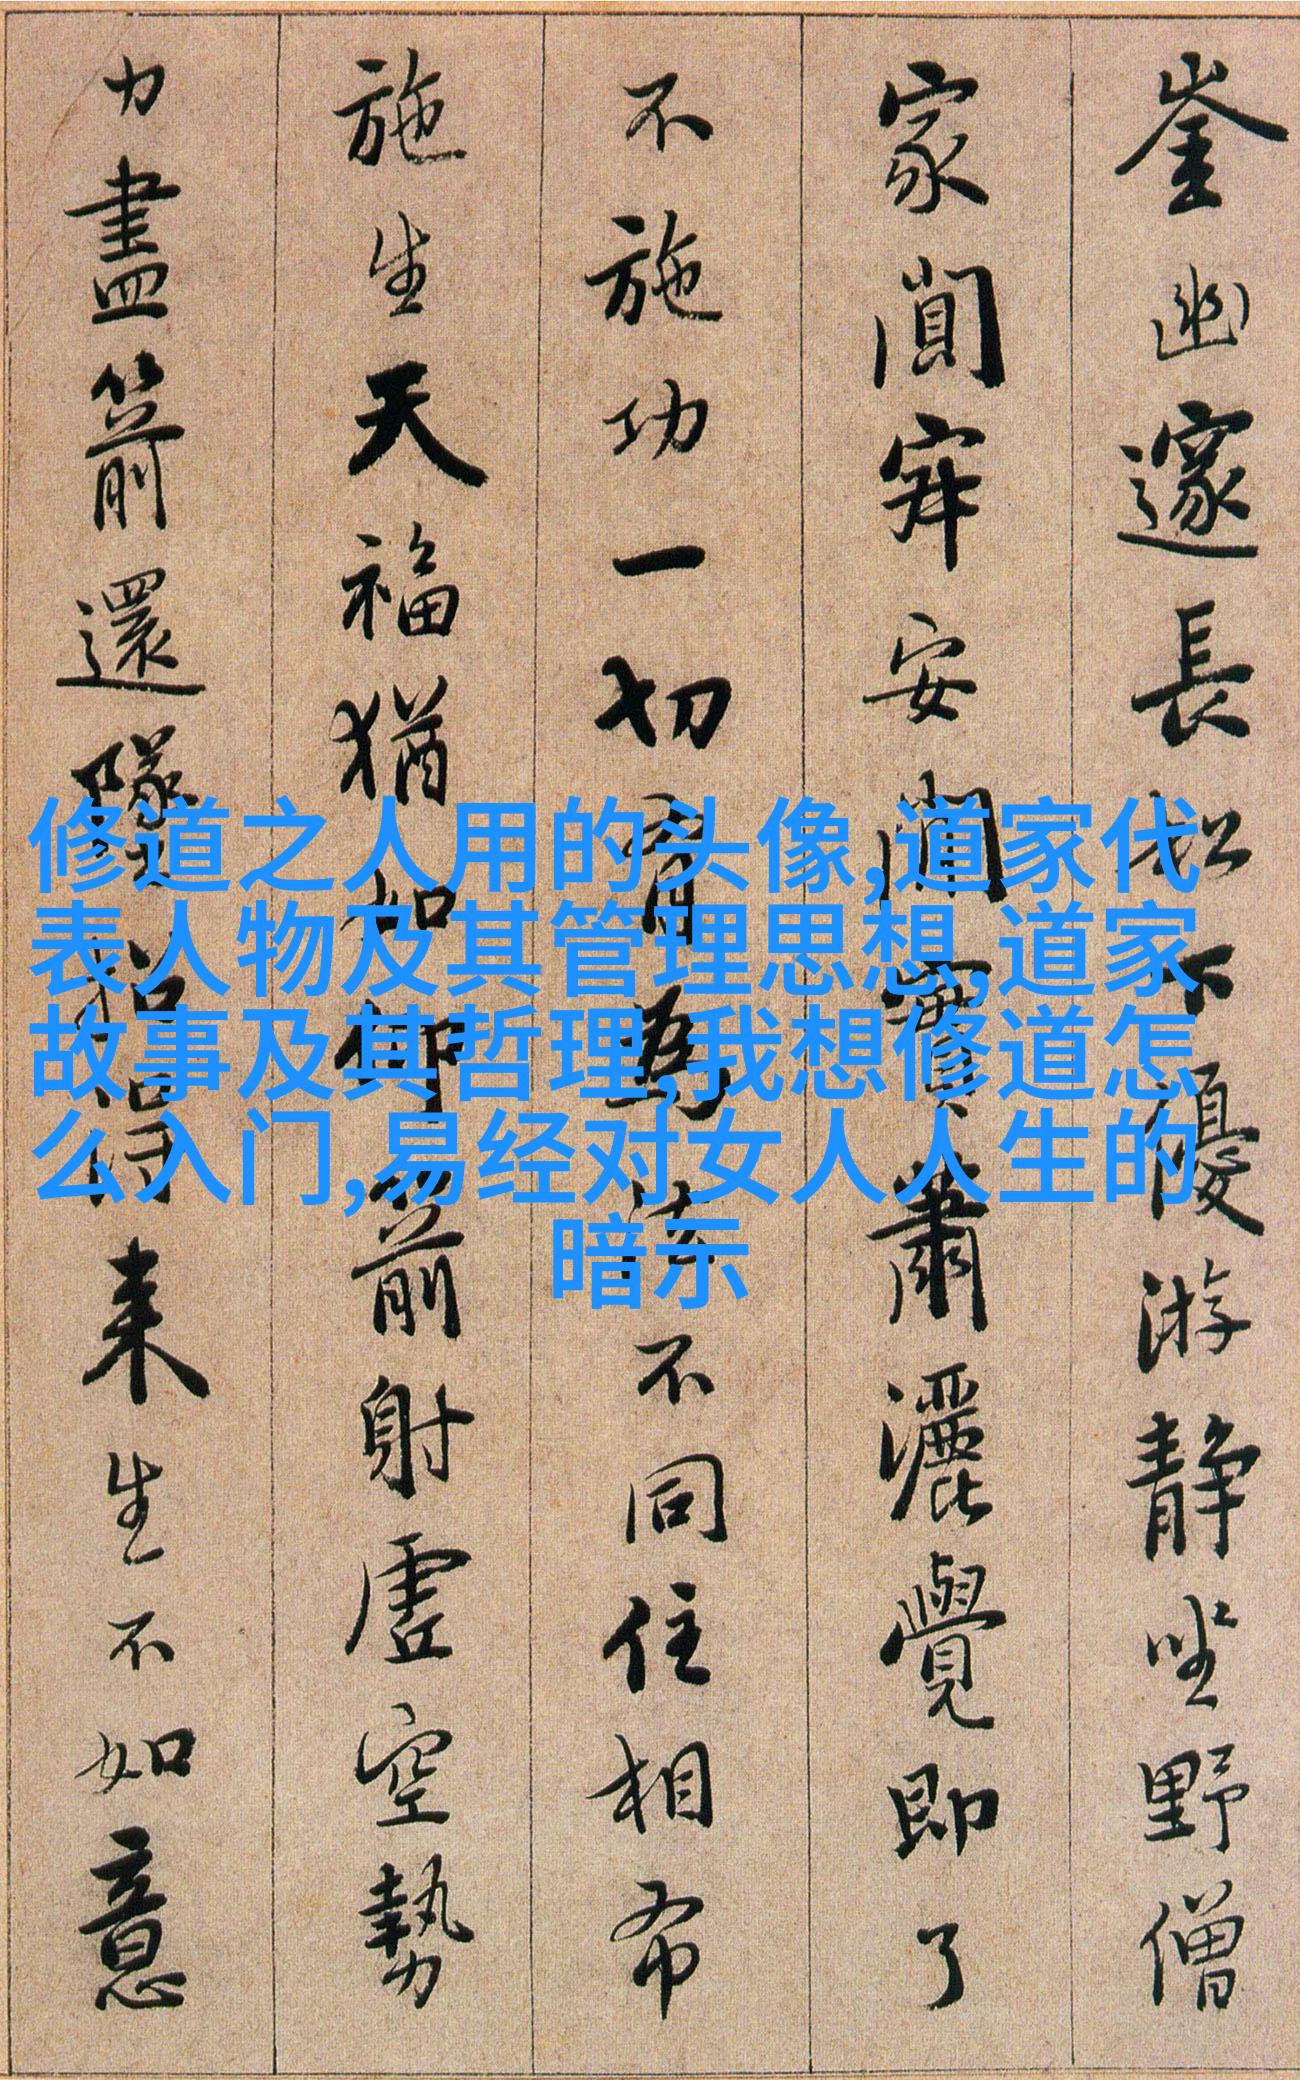 崟幽邃長松下優游靜坐野僧
家闃寂安閑實蕭灑覺即了
不施功一切有爲法不同住相布
施生天福猶如仰箭射虛空勢
力盡箭還墜招得來生不如意
修道之人用的头像,道家代
表人物及其管理思想,道家
故事及其哲理,我想修道怎
么入门,易经对女人人生的
暗示